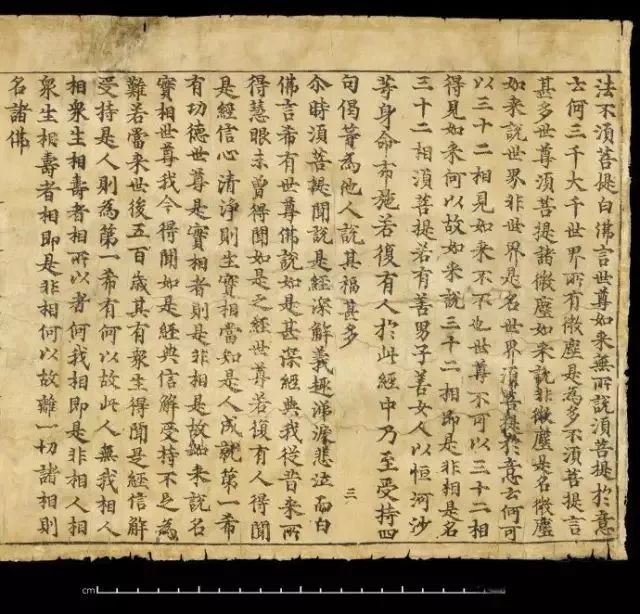 法不須菩提白佛言世尊如来無所說須菩提於意
云何三千大千世界所有微塵是為多不須菩提言
甚多世尊須菩提諸微塵如来說非微塵是名微塵
如来說世界非世界是名世界須菩提於意云何可
以三十二相見如来不不也世尊不可以三十二相
得見如来何以故如来說三十二相即是非相是名
三十二相須菩提若有善男子善女人以恒河沙
等身命布施若復有人於此經中乃至受持四
句偈等為他人說其福甚多
三
尒時須菩提聞說是經深解義趣涕淚悲泣而白
佛言希有世尊佛說如是甚深經典我從昔来所
得慧眼未曾得聞如是之經世尊若復有人得聞
是經信心清淨則生實相當知是人成就第一希
有功德世尊是實相者則是非相是故如来說名
實相世尊我今得聞如是經典信解受持不足為
難若當来世後五百歲其有衆生得聞是經信解
受持是人則為第一希有何以故此人無我相人
相衆生相壽者相所以者何我相即是非相人相
衆生相壽者相即是非相何以故離一切諸相則
名諸佛
cm